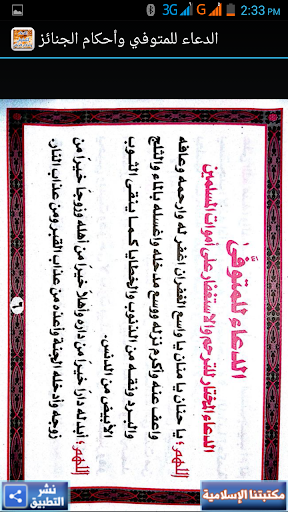 3G G 2:33 PM
الدعاء للمتوفي وأحكام الجنائز
الدعاء للمتوفَّى
الدعاء المختار للترحم والاستغفار على أموات المسلمين
اللهم؛ يا حنان يا منان يا واسع الغفران اغفر له وارحمه وعافه
واعف عنه وأكرم نزله ووسع مدخله واغسله بالماء والثلج
والبرد ونقه من الذنوب والخطايا كما ينقى الثوب
الأبيض من الدنس.
اللهم؛ أبدله داراً خيراً من داره وأهلاً خيراً من أهله وزوجاً خيراً من
زوجه وأدخله الجنة وأعذه من عذاب القبر ومن عذاب النار.
٦
مكتبتنا الإسلامية
نشر
التطبيق